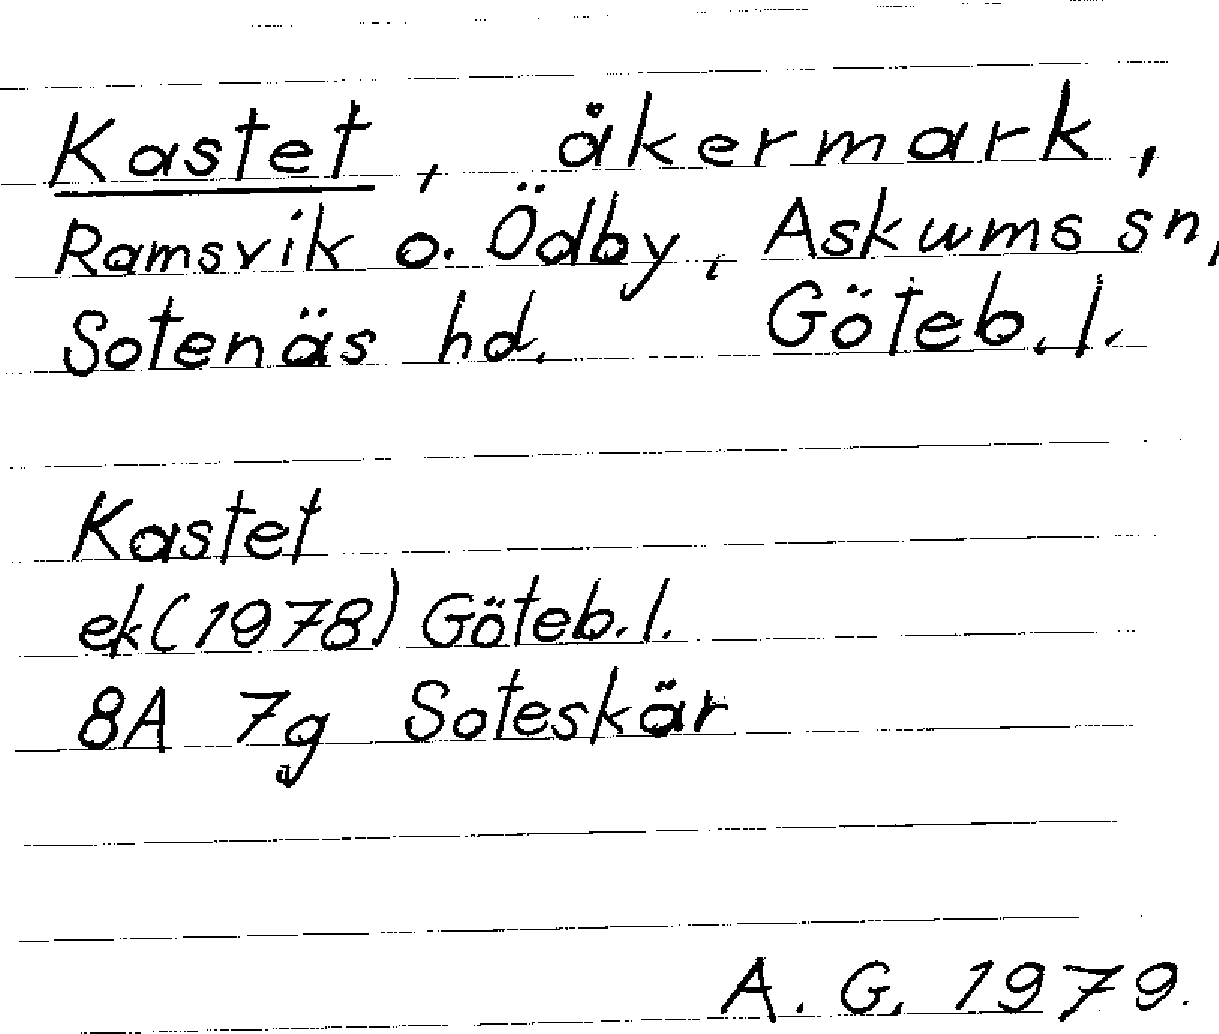 Kastet, åkermark,
Ramsvik o. Ödby, Askums sn,
Sotenäs hd. Göteb. l.
Kastet
ek (1978) Göteb. l.
8A 7g Soteskär
A. G. 1979.